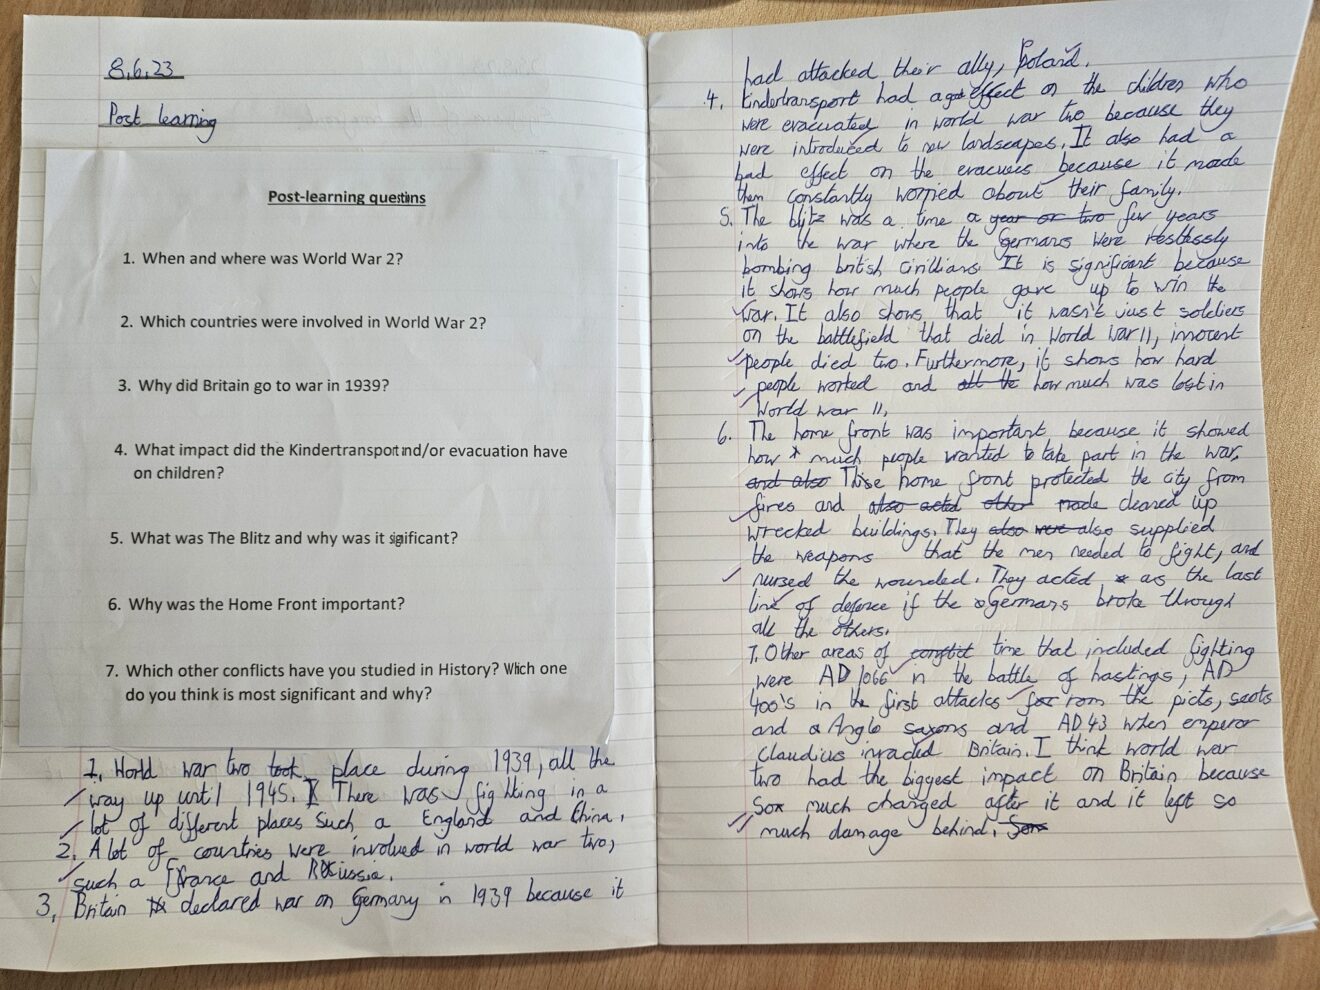 8.6.23
Post learning
Post-learning questions
1. When and where was World War 2?
2. Which countries were involved in World War 2?
3. Why did Britain go to war in 1939?
4. What impact did the Kindertransport and/or evacuation have
on children?
5. What was The Blitz and why was it significant?
6. Why was the Home Front important?
7. Which other conflicts have you studied in History? Which one
do you think is most significant and why?
1. World war two took place during 1939, all the
way up until 1945. There was fighting in a
lot of different places such a England and China.
2. A lot of countries were involved in world war two,
such a France and Russia.
3. Britain declared war on Germany in 1939 because it
had attacked their ally, Poland.
4. Kindertransport had a effect on the children who
were evacuated in world war two because they
were introduced to new landscapes. It also had a
bad effect on the evacuees because it made
them constantly worried about their family.
5. The blitz was a time a year or two few years
into the war where the Germans were restlessly
bombing british civillians. It is significant because
it shows how much people gave up to win the
war. It also shows that it wasn't just soldiers
on the battlefield that died in World War II, innocent
people died two. Furthermore, it shows how hard
people worked and all the how much was lost in
World war II.
6. The home front was important because it showed
how much people wanted to take part in the war.
and also Thise home front protected the city from
fires and also acted other made cleared up
wrecked buildings. They also wet also supplied
the weapons that the men needed to fight, and
nursed the wounded. They acted as the last
line of defence if the Germans broke through
all the others.
7. Other areas of conflict time that included fighting
were AD 1066 in the battle of hastings, AD
400's in the first attacks for rom the picts, scots
and Anglo saxons and AD 43 when emperor
Claudius invaded Britain. I think world war
two had the biggest impact on Britain because
so much changed after it and it left so
much damage behind.